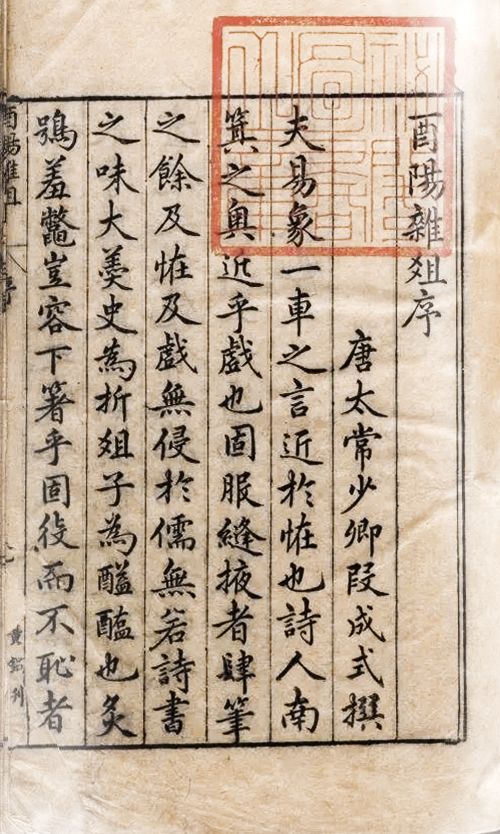 酉陽雜爼序
唐太常少卿段成式撰
夫易象一車之言近於恠也詩人南
箕之奥近乎戲也固服縫掖者肆筆
之餘及恠及戲無侵於儒無若詩書
之味大羹史為折爼子為醯醢也炙
鴞羞鼈豈容下箸乎固役而不恥者
酉陽雜爼
序